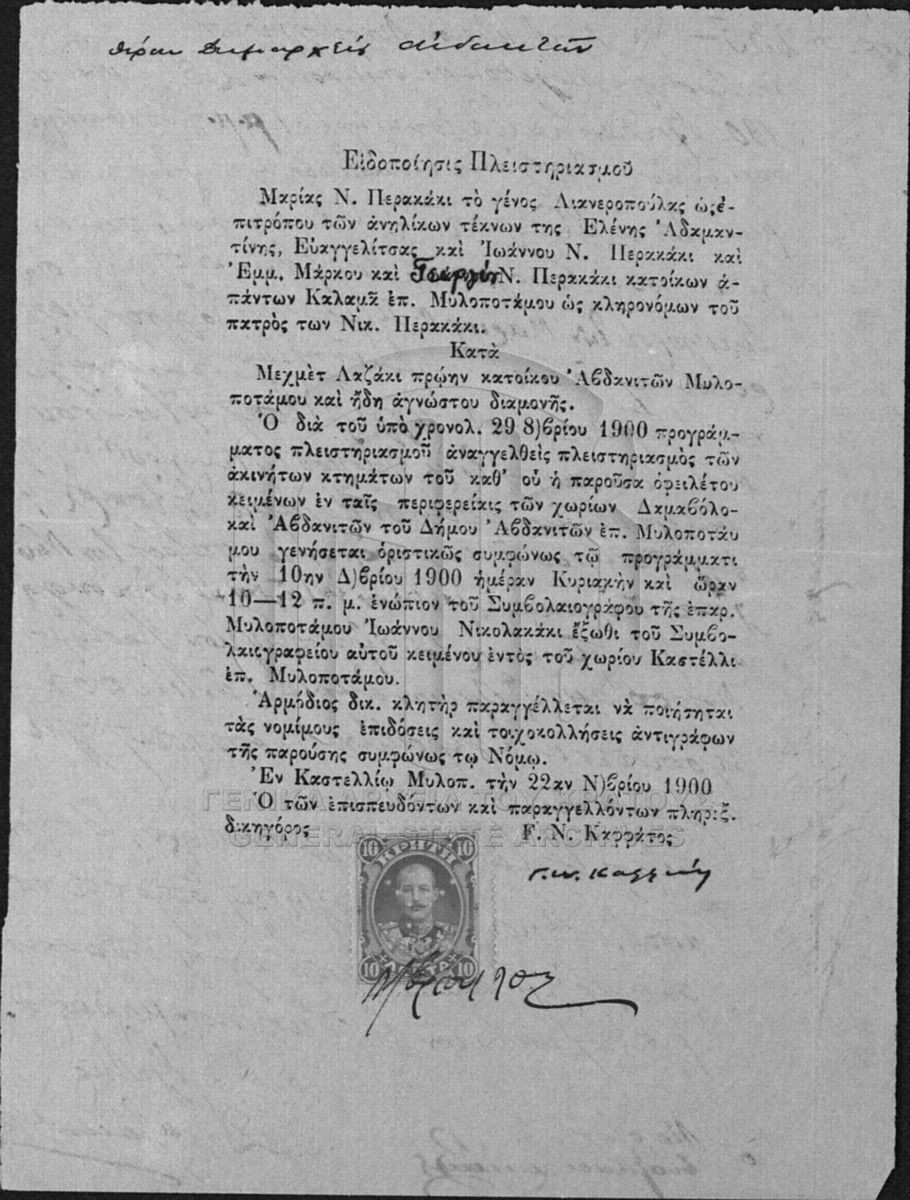 Εἰδοποίησις Πλειστηριασμοῦ
Μαρίας Ν. Περακάκι τὸ γένος Λιανεροπούλας ὡς ἐ-
πιτρόπου τῶν ἀνηλίκων τέκνων της Ελένης Ἀδαμαν-
τίνης, Εὐαγγελίτσας καὶ Ἰωάννου Ν. Περακάκι καὶ
Ἐμμ. Μάρκου καὶ Γεωργίου Ν. Περακάκι κατοίκων ἁ-
πάντων Καλαμᾶ ἐπ. Μυλοποτάμου ὡς κληρονόμων τοῦ
πατρὸς των Νικ. Περακάκι.
Κατὰ
Μεχμὲτ Λαζάκι πρῴην κατοίκου Ἀβδανιτῶν Μυλο-
ποτάμου καὶ ἤδη ἀγνώστου διαμονῆς.
Ὁ διὰ τοῦ ὑπὸ χρονολ. 29 8)βρίου 1900 προγράμ-
ματος πλειστηριασμοῦ ἀναγγελθεὶς πλειστηριασμὸς τῶν
ἀκινήτων κτημάτων τοῦ καθ' οὗ ἡ παροῦσα ὀφειλέτου
κειμένων ἐν ταῖς περιφερείαις τῶν χωρίων Δαμαβόλο-
καὶ Ἀβδανιτῶν τοῦ Δήμου Ἀβδανιτῶν ἐπ. Μυλοποτάυ
μου γενήσεται ὁριστικῶς συμφώνως τῷ προγράμματι
τὴν 10ην Δ)βρίου 1900 ἡμέραν Κυριακὴν καὶ ὥραν
10—12 π. μ. ἐνώπιον τοῦ Συμβολαιογράφου τῆς ἐπαρ.
Μυλοποτάμου Ἰωάννου Νικολακάκι ἔξωθι τοῦ Συμβο-
λαιογραφείου αὐτοῦ κειμένου ἐντὸς τοῦ χωρίου Καστέλλι
ἐπ. Μυλοποτάμου.
Ἁρμόδιος δικ. κλητὴρ παραγγέλλεται νὰ ποιήσηται
τὰς νομίμους ἐπιδόσεις καὶ τοιχοκολλήσεις ἀντιγράφων
τῆς παρούσης συμφώνως τῳ Νόμῳ.
Ἐν Καστελλίῳ Μυλοπ. τὴν 22αν Ν)βρίου 1900
Ὁ τῶν ἐπισπευδόντων καὶ παραγγελλόντων πληρεξ.
δικηγόρος Γ. Ν. Καφφάτος
GENERAL STATE ARCHIVES
10 ΚΡΗΤΗ 10
10 ΛΕΠΤΑ 10